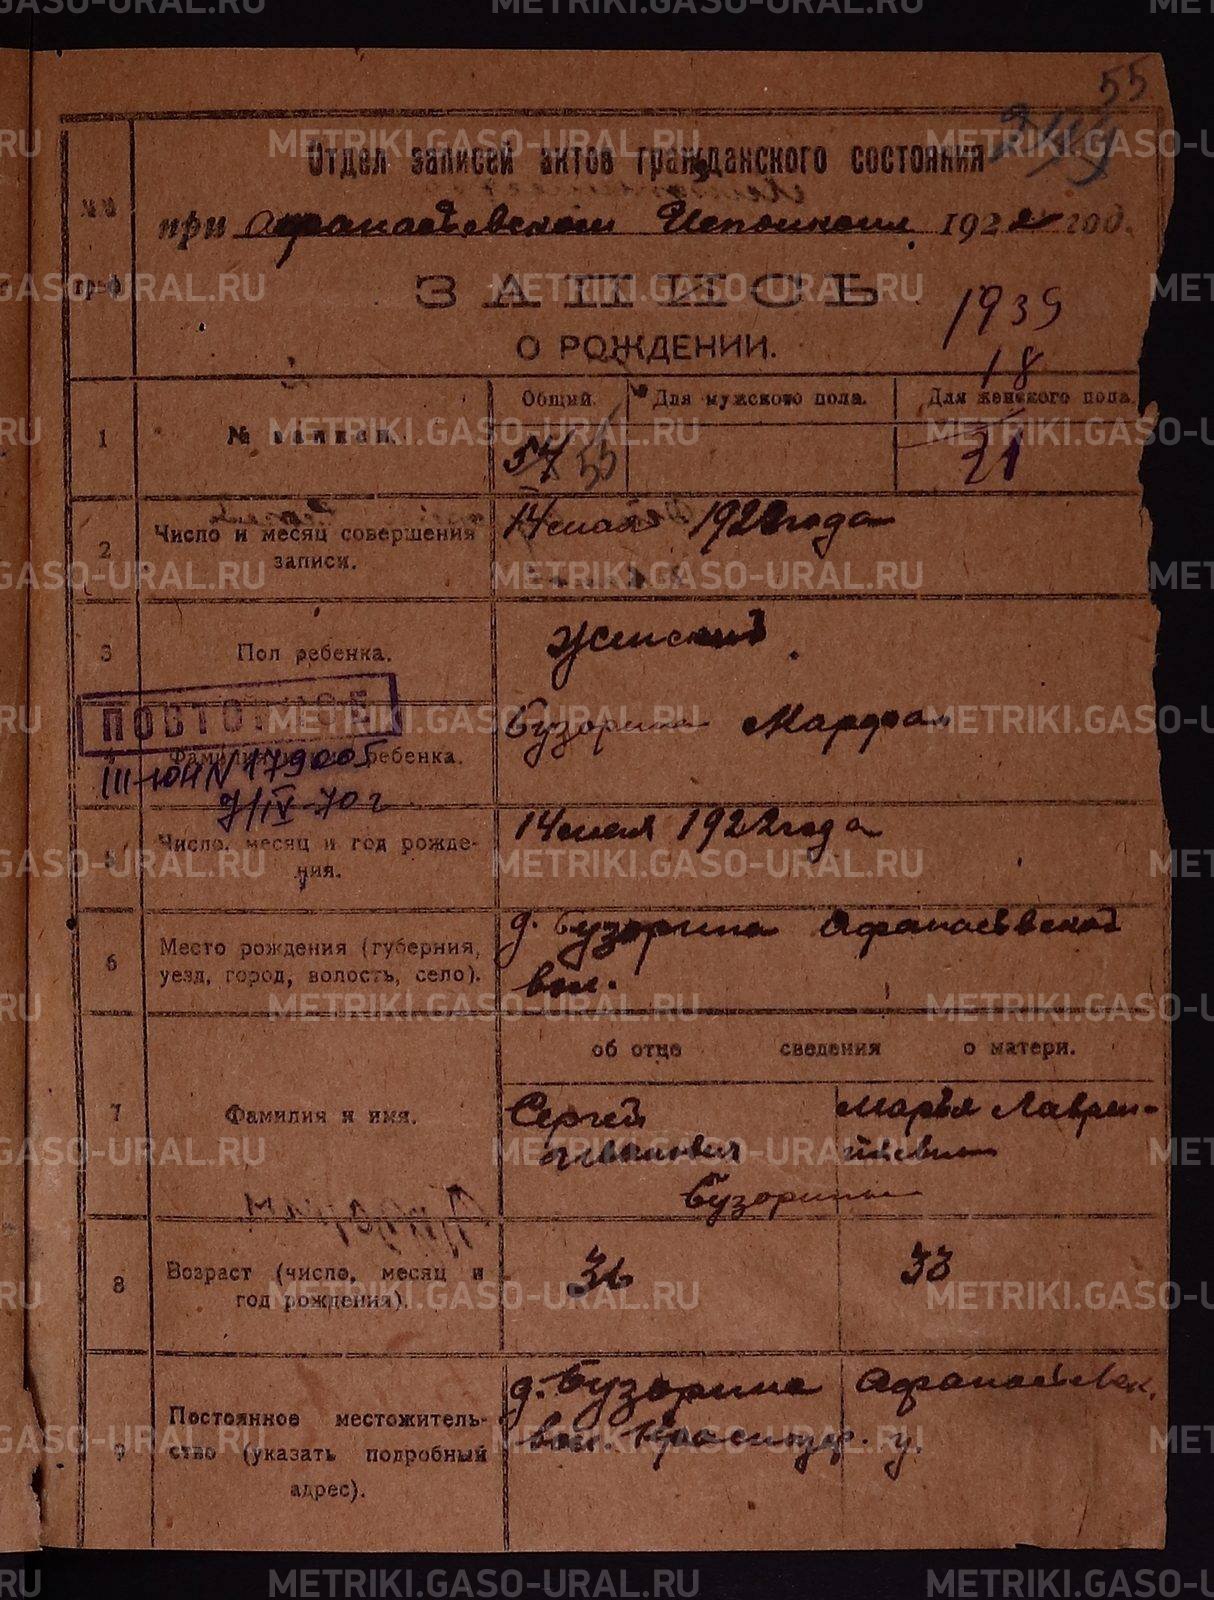 55
Отдел записей актов гражданского состояния
№№ граф
при Афанасьевском Исполкоме 1922 год.
ЗАПИСЬ
О РОЖДЕНИИ.
1939
18
1 № записи. Общий. Для мужского пола. Для женского пола.
57 55 21
2 Число и месяц совершения записи. 14 мая 1922 года
3 Пол ребенка. Женский
ПОВТОРНОЕ
4 Фамилия ребенка. Бузорина Марфа
III-ЮН № 179005
7/IV-70 г
5 Число, месяц и год рождения. 14 мая 1922 года
6 Место рождения (губерния, уезд, город, волость, село). д. Бузорина Афанасьевской вол.
об отце сведения о матери.
7 Фамилия и имя. Сергей Иванович Марья Лаврентьевна
Бузорины
8 Возраст (число, месяц и год рождения). 36 33
9 Постоянное местожительство (указать подробный адрес). д. Бузорина Афанасьевск. вол. Красноуф. у.
METRIKI.GASO-URAL.RU